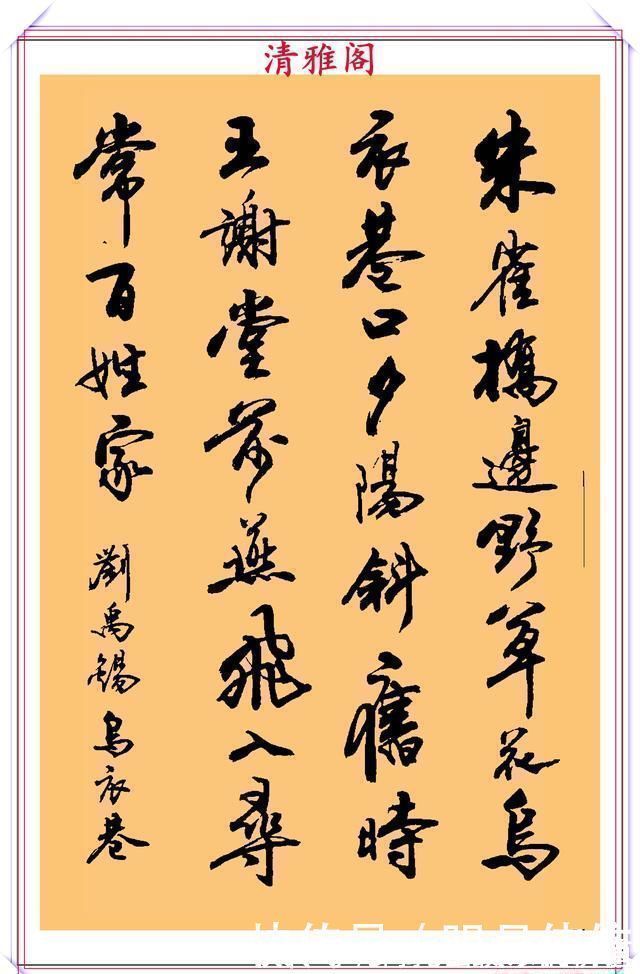 清雅阁
朱雀橋邊野草花烏
衣巷口夕陽斜舊時
王謝堂前燕飛入尋
常百姓家
劉禹錫烏衣巷